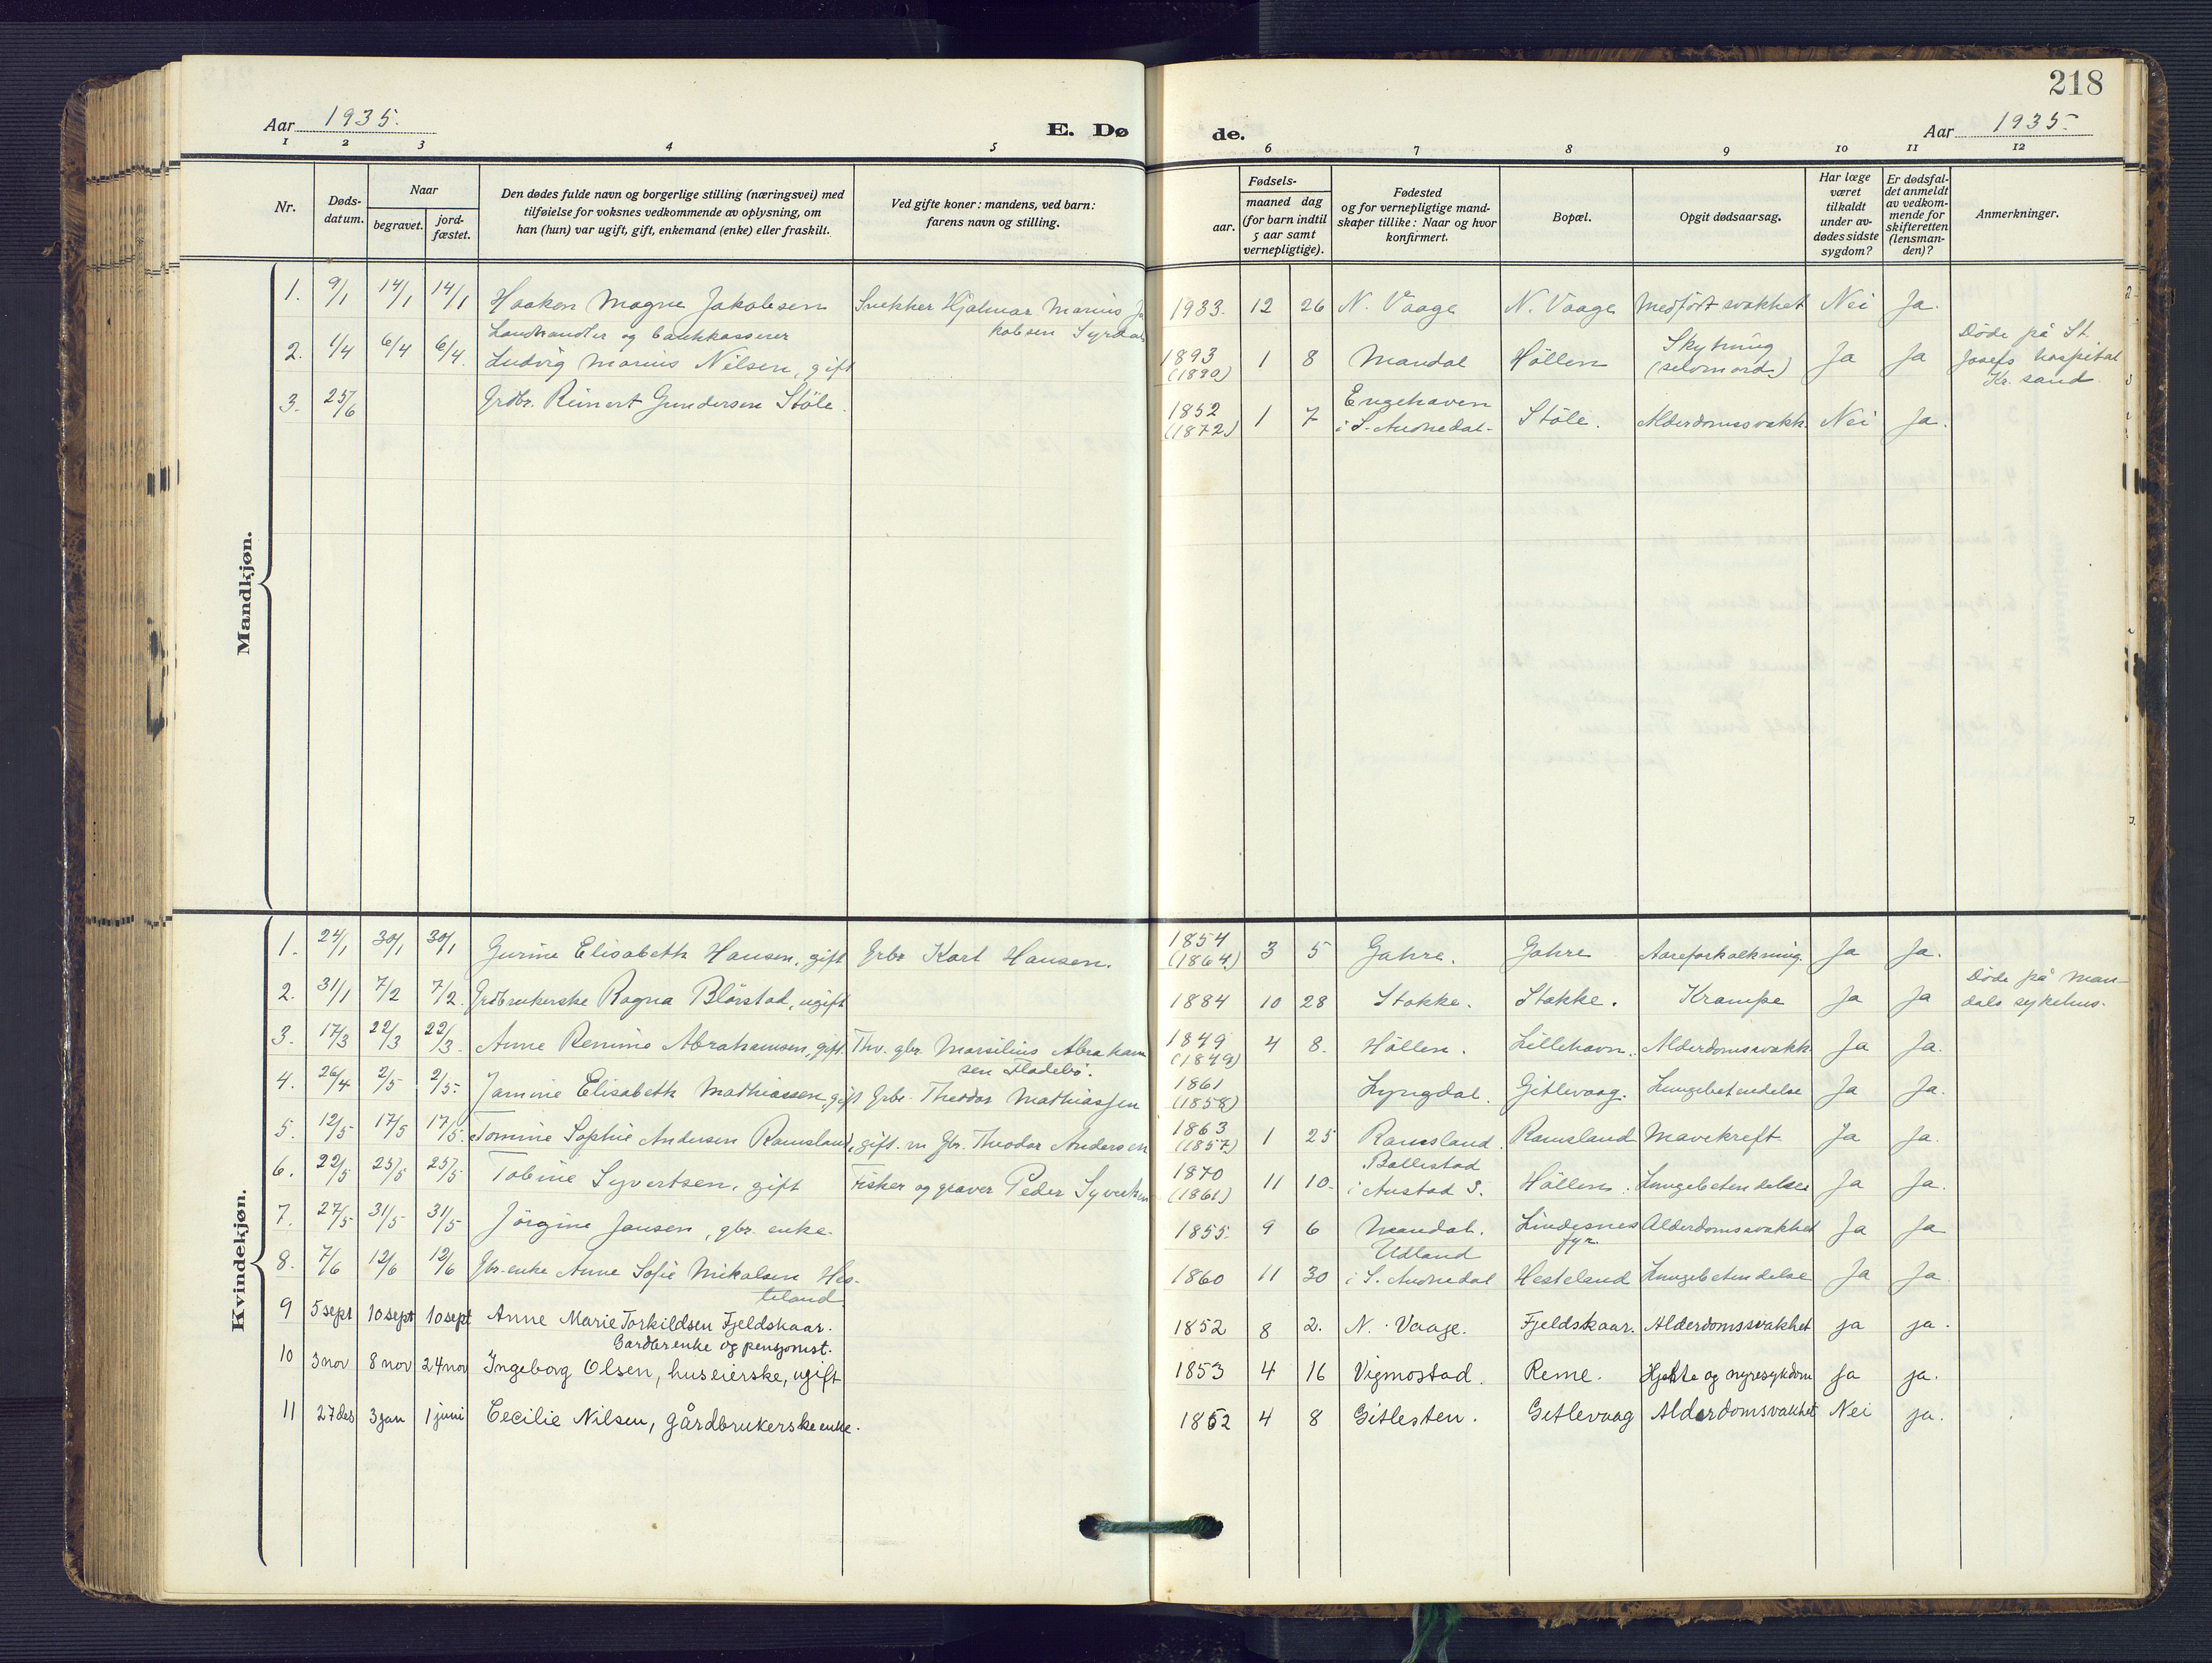 218
Aar 1935.
E. Dø
de.
Aar 1935.
1 2 3 4 5 6 7 8 9 10 11 12
Nr.
Døds-
datum.
Naar
begravet.
jord-
fæstet.
Den dødes fulde navn og borgerlige stilling (næringsvei) med
tilføielse for voksnes vedkommende av oplysning, om
han (hun) var ugift, gift, enkemand (enke) eller fraskilt.
Ved gifte koner: mandens, ved barn:
farens navn og stilling.
Fødsels-
aar.
maaned dag
(for barn indtil
5 aar samt
vernepligtige).
Fødested
og for vernepligtige mand-
skaper tillike: Naar og hvor
konfirmert.
Bopæl.
Opgit dødsaarsag.
Har læge
været
tilkaldt
under av-
dødes sidste
sygdom?
Er dødsfal-
det anmeldt
av vedkom-
mende for
skifteretten
(lensman-
den)?
Anmerkninger.
Mandkjøn.
1. 9/1 14/1 14/1 Haakon Magne Jakobsen Snekker Hjalmar Marius Ja
kobsen Syrdal 1933. 12 26 N. Vaage N. Vaage Medfört svakhet Nei Ja.
Landhandler og bankkasserer
2. 1/4 6/4 6/4. Ludvig Marius Nilsen, gift 1893 (1890) 1 8 Mandal Höllen Skytning (selvmord) Ja Ja Döde på St.
Josefs hospital
Kr. sand
3. 25/6 Grdbr. Reinert Gundersen Stöle. 1852 (1872) 1 7 Engehaven
i S. Audnedal. Stöle. Alderdomssvakh. Nei Ja.
Kvindekjøn.
1. 24/1 30/1 30/1 Gurine Elisabeth Hansen, gift Grbr Karl Hansen. 1854 (1864) 3 5 Gahre. Gahre Aareforkalkning. Ja Ja.
2. 31/1 7/2 7/2. Grdbrukerske Ragna Blörstad, ugift 1884 10 28 Stokke. Stokke. Krampe Ja Ja Döde på Man-
dals sykehus.
3. 17/3 22/3 22/3. Anne Renine Abrahamsen, gift. Thv. gbr. Marsilius Abraham
sen Flodebö. 1849 (1849) 4 8. Höllen. Lillehavn. Alderdomssvakh Ja Ja.
4. 26/4 2/5 2/5. Jamine Elisabeth Mathiassen gift Grbr. Theodor Mathiassen 1861 (1858) Lyngdal. Gitlevaag. Lungebetendelse Ja Ja.
5. 12/5 17/5 17/5. Tomine Sophie Andersen Ramsland, gift. m Gbr. Theodor Andersen 1863 (1857) 1 25 Ramsland. Ramsland Mavekreft. Ja Ja.
6. 22/5 25/5 25/5 Tobine Syvertsen, gift Fisker og graver Peder Syvertsen 1870 (1861) 11 10. Ballestad
i Austad S. Höllen. Lungebetendelse Ja Ja.
7. 27/5 31/5 31/5 Jörgine Jansen, gbr. enke. 1855. 9 6 Mandal. Lindesnes
fyr. Alderdomssvakhet Ja Ja
8. 7/6 12/6 12/6 Gbr.enke Anne Sofie Mikalsen Hes-
teland. 1860 11 30 Udland
i S. Audnedal Hesteland Lungebetendelse Ja Ja
9 5 sept 10 sept 10 sept Anne Marie Torkildsen Fjeldskaar.
Gardarenke og pensjonist. 1852 8 2. N. Vaage. Fjeldskaar. Alderdomssvakhet ja ja.
10 3 nov 8 nov 24 nov Ingeborg Olsen, huseierske, ugift 1853 4 16 Vigmostad. Reme. Hjerte og nyresykdom Ja ja.
11 27 des 3 jan 1 juni Cecilie Nilsen, gårdbrukerske enke. 1852 4 8 Gitlesten. Gitlevaag Alderdomsvakhet Nei ja.